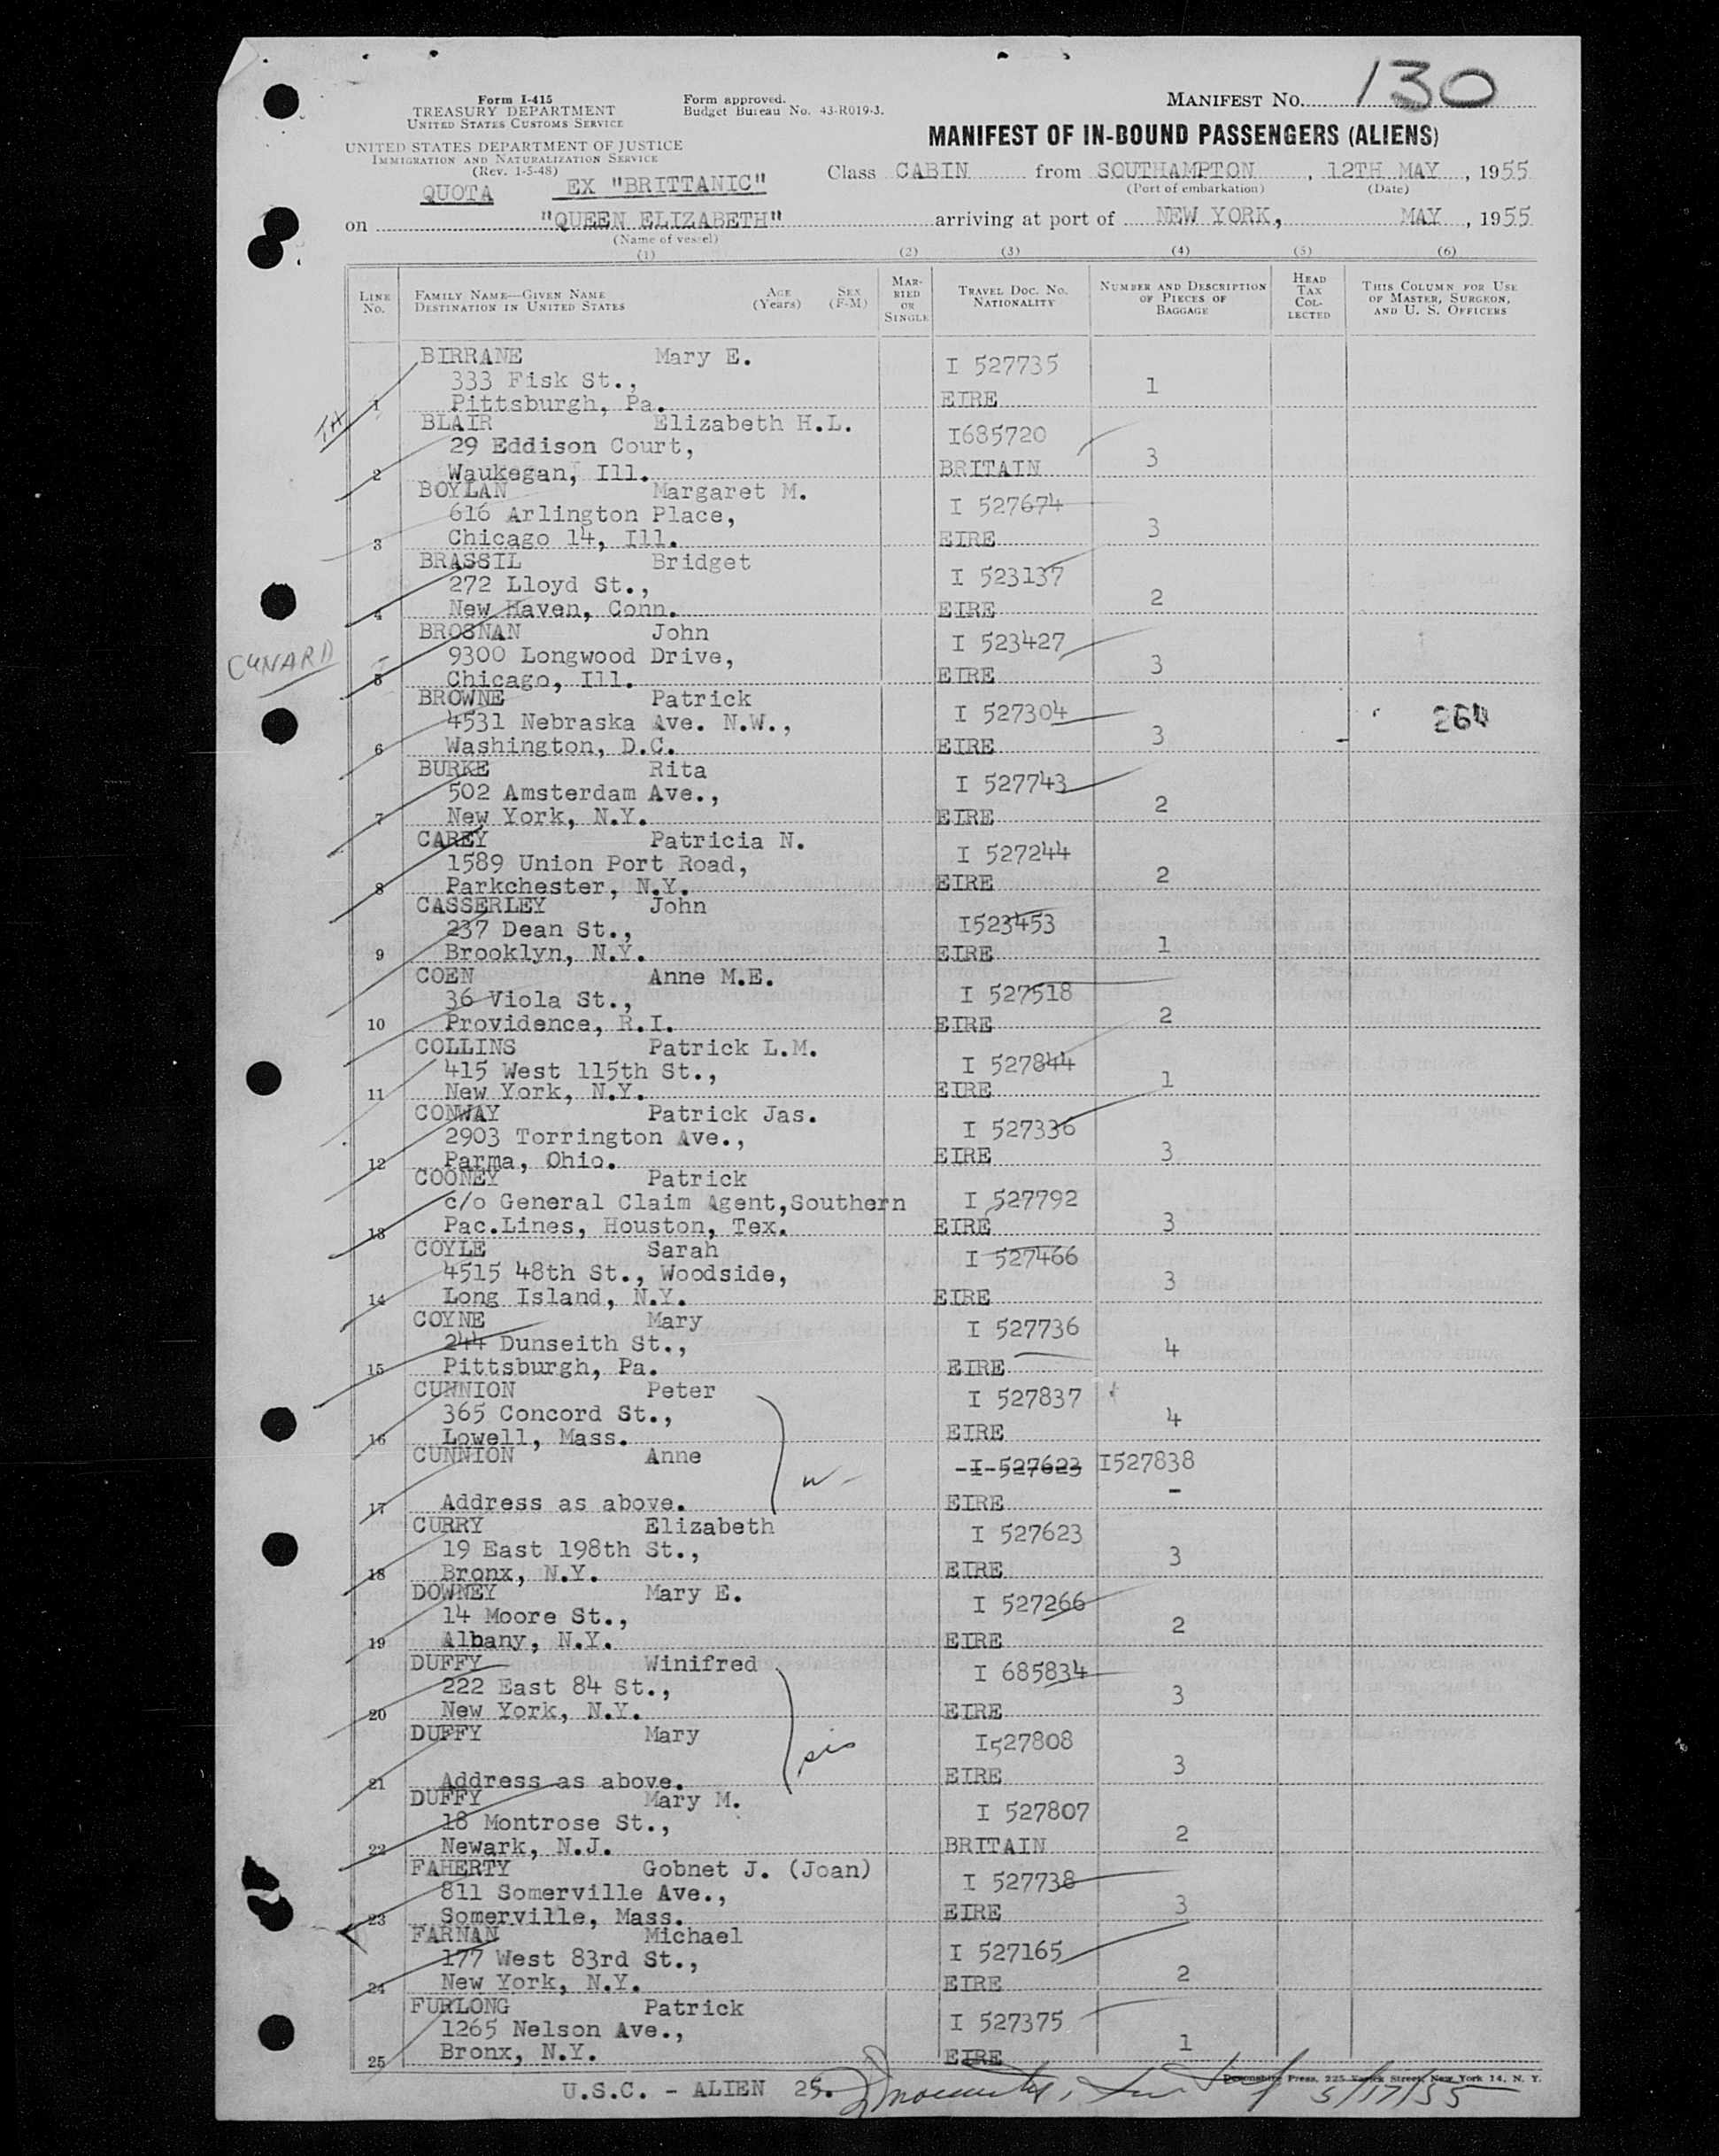 130
Form I-415
TREASURY DEPARTMENT
UNITED STATES CUSTOMS SERVICE
UNITED STATES DEPARTMENT OF JUSTICE
IMMIGRATION AND NATURALIZATION SERVICE
(Rev. 1-5-48)
Form approved.
Budget Bureau No. 43-R019-3.
MANIFEST NO.
MANIFEST OF IN-BOUND PASSENGERS (ALIENS)
Class CABIN from SOUTHAMPTON, 12TH MAY, 1955
(Port of embarkation) (Date)
QUOTA EX "BRITTANIC"
on "QUEEN ELIZABETH" arriving at port of NEW YORK, MAY, 1955
(Name of vessel)
(1) (2) (3) (4) (5) (6)
LINE NO.
FAMILY NAME—GIVEN NAME
DESTINATION IN UNITED STATES
AGE (Years)
SEX (F-M)
MARRIED OR SINGLE
TRAVEL DOC. NO.
NATIONALITY
NUMBER AND DESCRIPTION OF PIECES OF BAGGAGE
HEAD TAX COLLECTED
THIS COLUMN FOR USE OF MASTER, SURGEON, AND U. S. OFFICERS
BIRRANE Mary E. I 527735
333 Fisk St., 1
1 Pittsburgh, Pa. EIRE
BLAIR Elizabeth H.L. I685720
29 Eddison Court, 3
2 Waukegan, Ill. BRITAIN
BOYLAN Margaret M. I 527674
616 Arlington Place, 3
3 Chicago 14, Ill. EIRE
BRASSIL Bridget I 523137
272 Lloyd St., 2
4 New Haven, Conn. EIRE
CUNARD
BROSNAN John I 523427
9300 Longwood Drive, 3
5 Chicago, Ill. EIRE
BROWNE Patrick I 527304 264
4531 Nebraska Ave. N.W., 3
6 Washington, D.C. EIRE
BURKE Rita I 527743
502 Amsterdam Ave., 2
7 New York, N.Y. EIRE
CAREY Patricia N. I 527244
1589 Union Port Road, 2
8 Parkchester, N.Y. EIRE
CASSERLEY John I523453
237 Dean St., 1
9 Brooklyn, N.Y. EIRE
COEN Anne M.E. I 527518
36 Viola St., 2
10 Providence, R.I. EIRE
COLLINS Patrick L.M. I 527844
415 West 115th St., 1
11 New York, N.Y. EIRE
CONWAY Patrick Jas. I 527336
2903 Torrington Ave., 3
12 Parma, Ohio. EIRE
COONEY Patrick I 527792
c/o General Claim Agent,Southern
13 Pac.Lines, Houston, Tex. EIRE 3
COYLE Sarah I 527466
4515 48th St., Woodside, 3
14 Long Island, N.Y. EIRE
COYNE Mary I 527736
244 Dunseith St., 4
15 Pittsburgh, Pa. EIRE
CUNNION Peter I 527837
365 Concord St., 4
16 Lowell, Mass. EIRE
CUNNION Anne I 527623 I527838
w -
17 Address as above. EIRE -
CURRY Elizabeth I 527623
19 East 198th St., 3
18 Bronx, N.Y. EIRE
DOWNEY Mary E. I 527266
14 Moore St., 2
19 Albany, N.Y. EIRE
DUFFY Winifred I 685834
222 East 84 St., 3
20 New York, N.Y. EIRE
DUFFY Mary I527808
sis 3
21 Address as above. EIRE
DUFFY Mary M. I 527807
18 Montrose St., 2
22 Newark, N.J. BRITAIN
FAHERTY Gobnet J. (Joan) I 527738
811 Somerville Ave., 3
23 Somerville, Mass. EIRE
FARNAN Michael I 527165
177 West 83rd St., 2
24 New York, N.Y. EIRE
FURLONG Patrick I 527375
1265 Nelson Ave., 1
25 Bronx, N.Y. EIRE
U.S.C. - ALIEN 25.
Devonshire Press, 225 Varick Street, New York 14, N. Y.
5/17/55